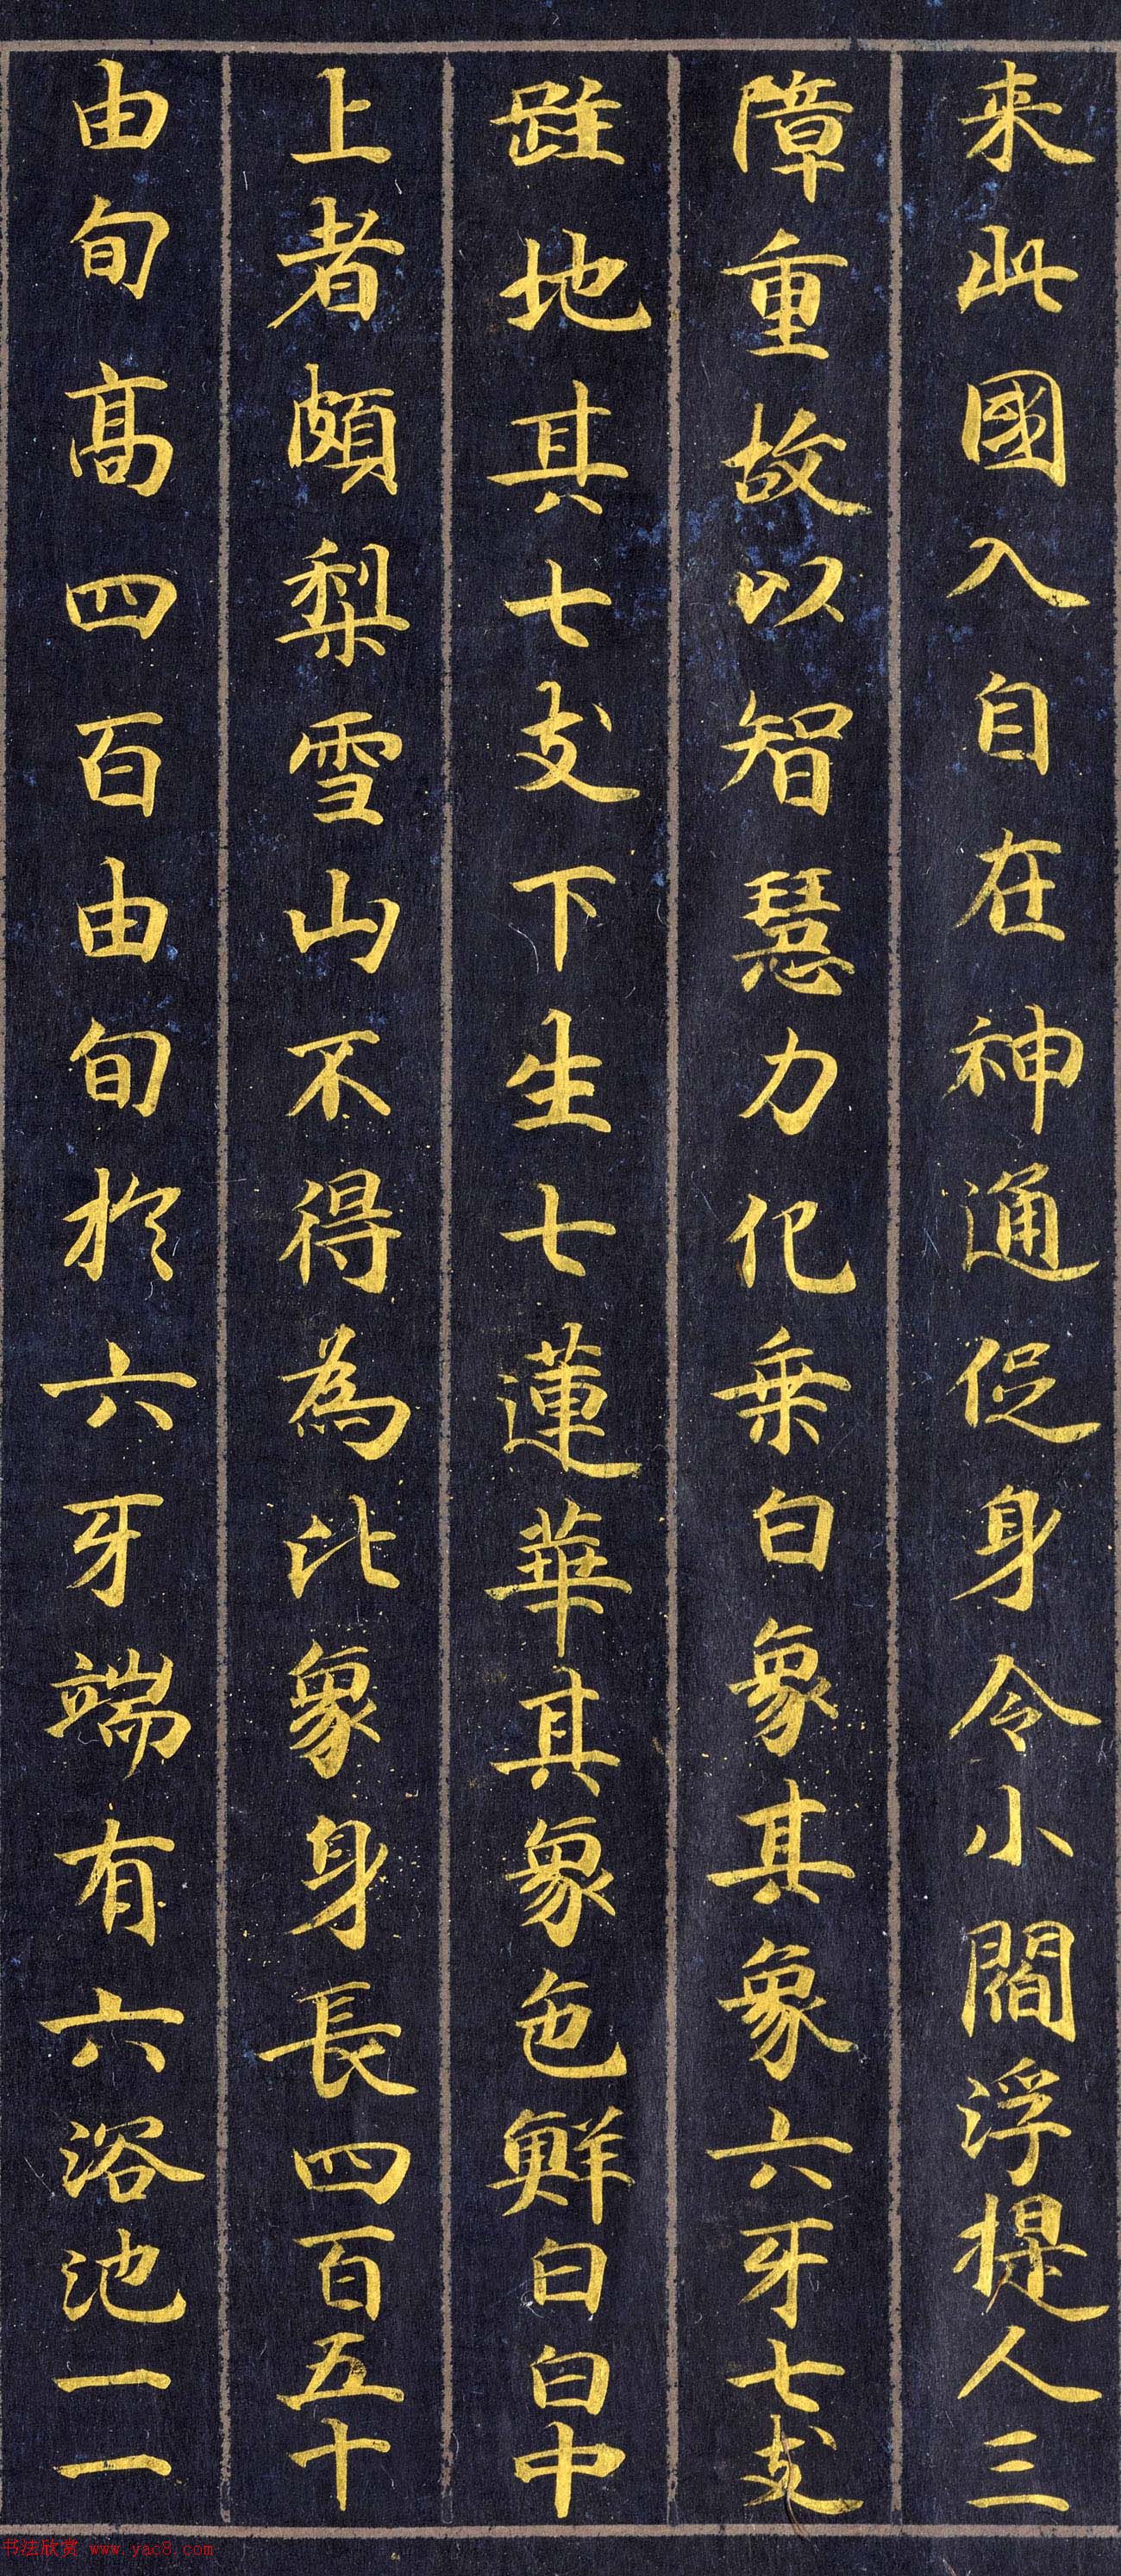 来此國入自在神通促身令小閻浮提人三
障重故以智慧力化乘白象其象六牙七支
跓地其七支下生七蓮華其象色鮮白白中
上者頗梨雪山不得為比象身長四百五十
由旬高四百由旬於六牙端有六浴池一一
书法欣赏 www.yac8.com